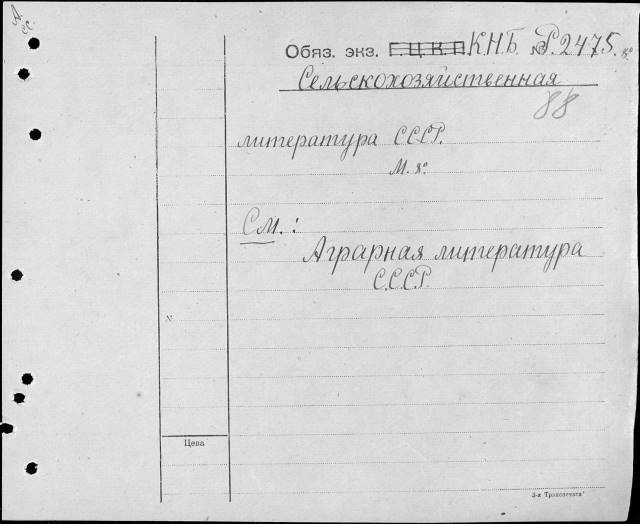 А.
СС.
Обяз. экз. Г.Ц.К.П. К.Н.Б. № Р. 2475. 8º
Сельскохозяйственная
88
литература СССР.
М. 8º
См.:
Аграрная литература
СССР.
№
Цена
3-я Транспечать